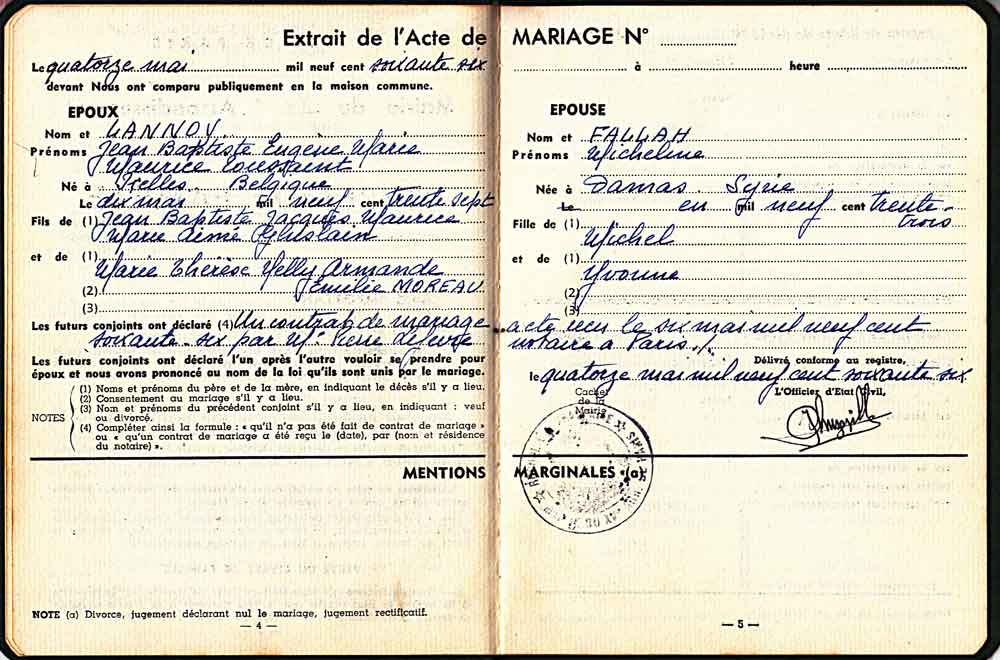 Extrait de l'Acte de MARIAGE N°
Le quatorze mai mil neuf cent soixante six à heure
devant Nous ont comparu publiquement en la maison commune.
EPOUX
Nom et LANNOY
Prénoms Jean Baptiste Eugène Marie
Maurice Toussaint
Né à Ixelles Belgique
Le dix mai mil neuf cent trente sept
Fils de (1) Jean Baptiste Jacques Maurice
Marie Aimé Ghislain
et de (1)
Marie Thérèse Nelly Armande
(2) Emilie MOREAU
(3)
EPOUSE
Nom et FALLAH
Prénoms Micheline
Née à Damas Syrie
Le en mil neuf cent trente-
trois
Fille de (1)
Michel
et de (1)
Yvonne
(2)
(3)
Les futurs conjoints ont déclaré (4) Un contrat de mariage acte reçu le six mai mil neuf cent
soixante-six par Me Pierre notaire à Paris ./.
Les futurs conjoints ont déclaré l'un après l'autre vouloir se prendre pour
époux et nous avons prononcé au nom de la loi qu'ils sont unis par le mariage.
NOTES
(1) Noms et prénoms du père et de la mère, en indiquant le décès s'il y a lieu.
(2) Consentement au mariage s'il y a lieu.
(3) Nom et prénoms du précédent conjoint s'il y a lieu, en indiquant : veuf
ou divorcé.
(4) Compléter ainsi la formule : « qu'il n'a pas été fait de contrat de mariage »
ou « qu'un contrat de mariage a été reçu le (date), par (nom et résidence
du notaire) ».
Délivré conforme au registre,
le quatorze mai mil neuf cent soixante six
Cachet
de la
Mairie
L'Officier d'Etat Civil,
MENTIONS MARGINALES (a)
NOTE (a) Divorce, jugement déclarant nul le mariage, jugement rectificatif.
— 4 —
— 5 —